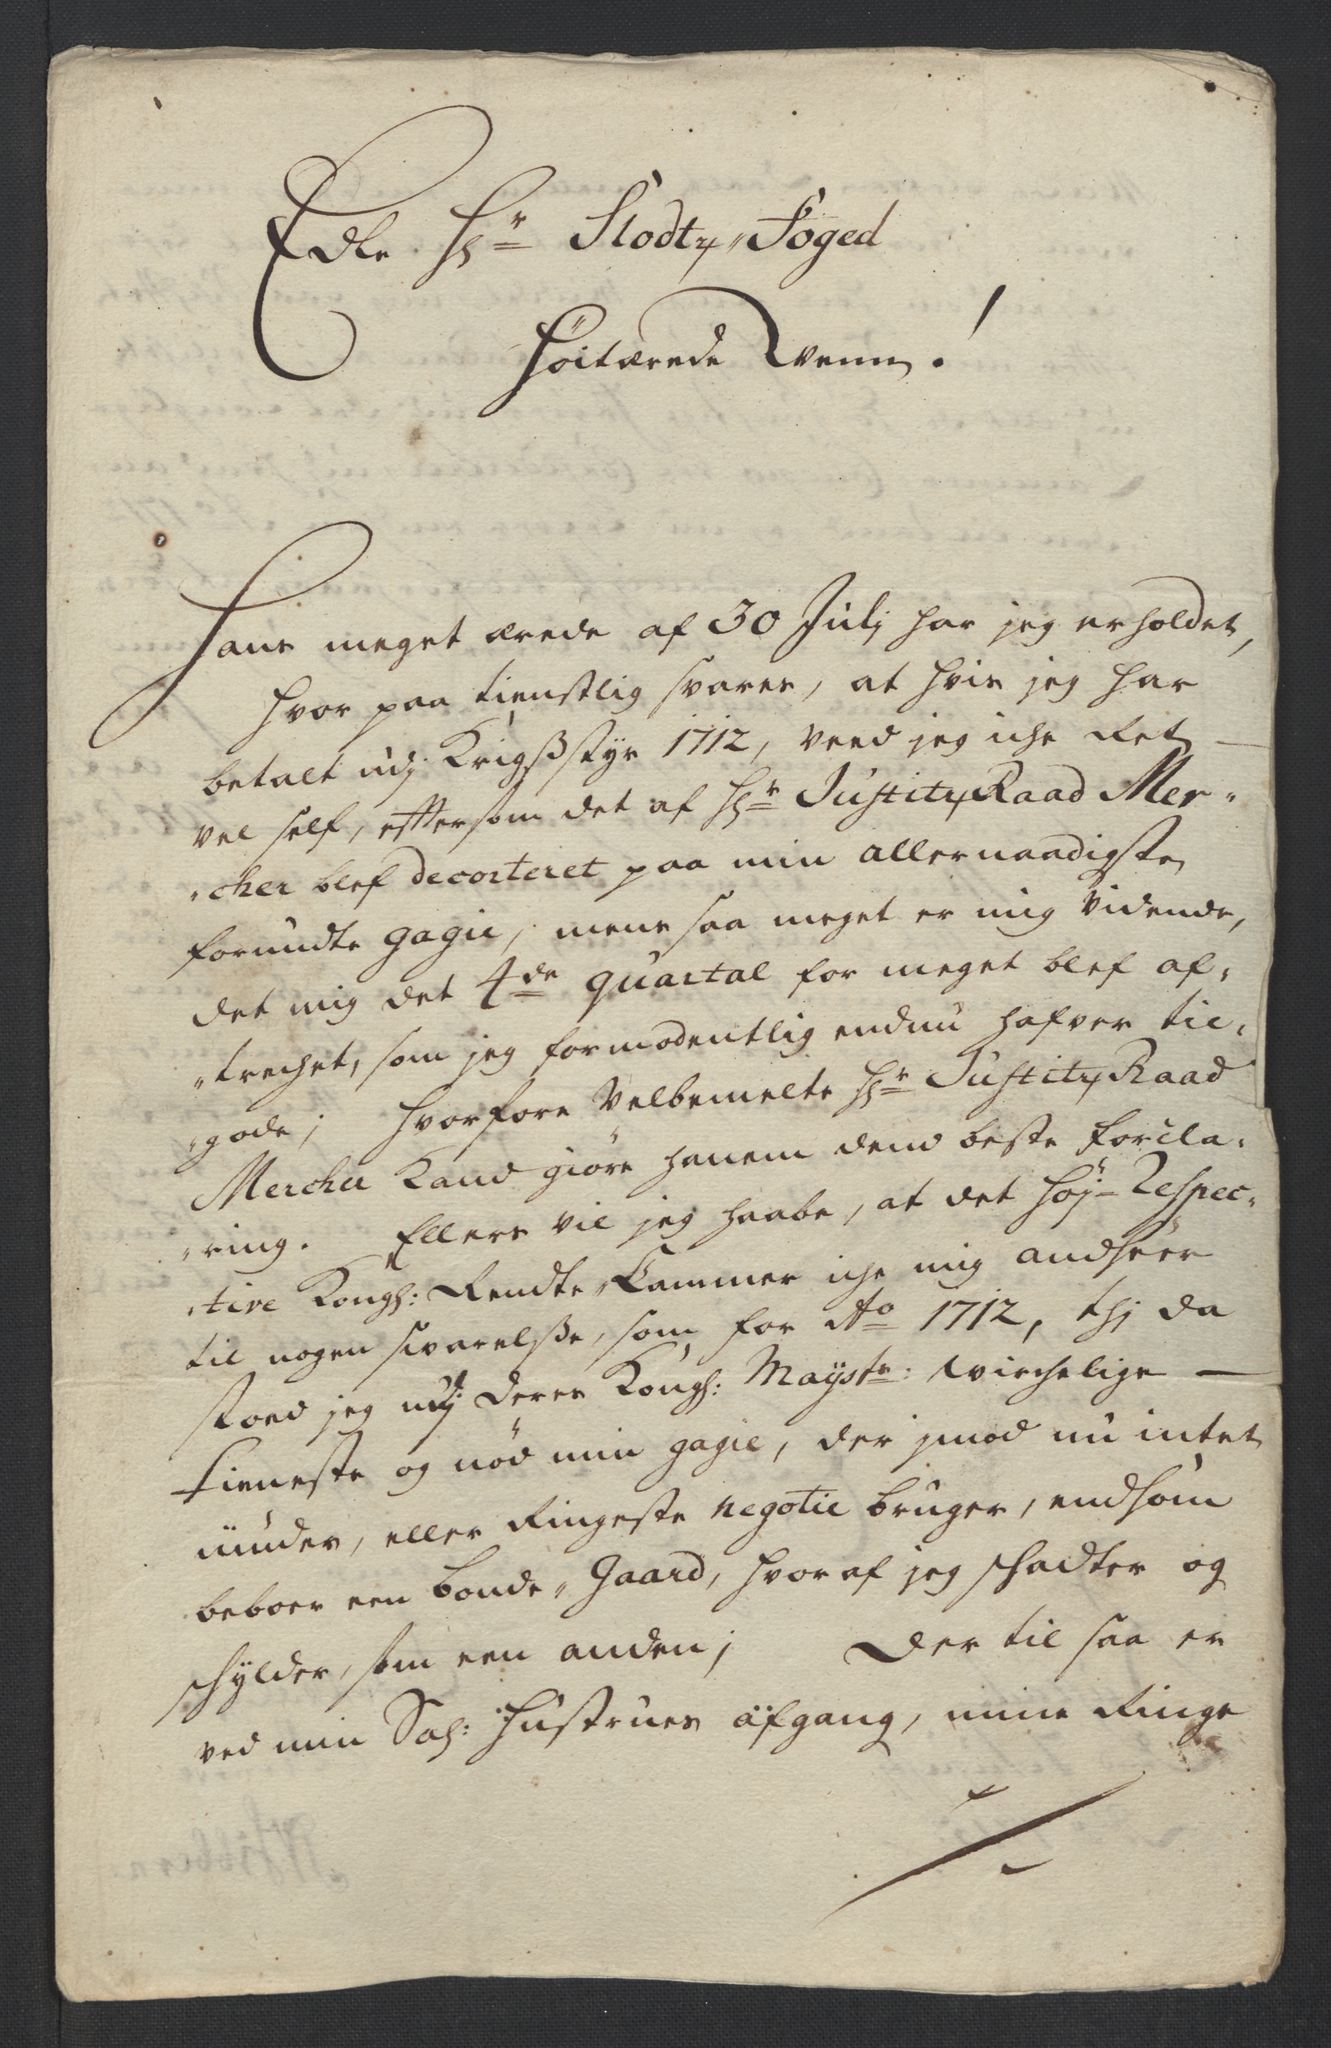 Edle Hr Slodtz„Foged
Höitærede Wenn!
Hans meget ærede af 30 Julj har jeg erholdet,
hvor paa tienstlig svarer, at hvis jeg har
betalt udj Krigsstyr 1712, veed jeg iche Ret
vel self, eftersom det af Hr JustitzRaad Mer„
„cher blef decorteret paa min allernaadigste
forundte gagie, mens saa meget er mig vidende,
det mig det 4de quartal for meget blef af„
„trechet, som jeg formodentlig endnu hafver til„
„gode; hvorfore Velbemelte Hr JustitzRaad
Mercher Kand giöre hanem dend beste forcla„
„ring. Ellers vil jeg haabe, at det höj- Respec„
„tive Kongl: Rendte„Kammer iche mig andseer
til nogen svarelsse, som for Ao 1712, thj da
stoed jeg udj Deres Kongl: Mayst: wirchelige
tieneste og nöd min gagie, der jmod nu intet
niuder, eller Ringeste negotie bruger, endsom
beboer een bonde„Gaard, hvor af jeg schadter og
schylder, som een anden; Der til saa er
ved min Sal: Hustrues afgang, mine Ringe